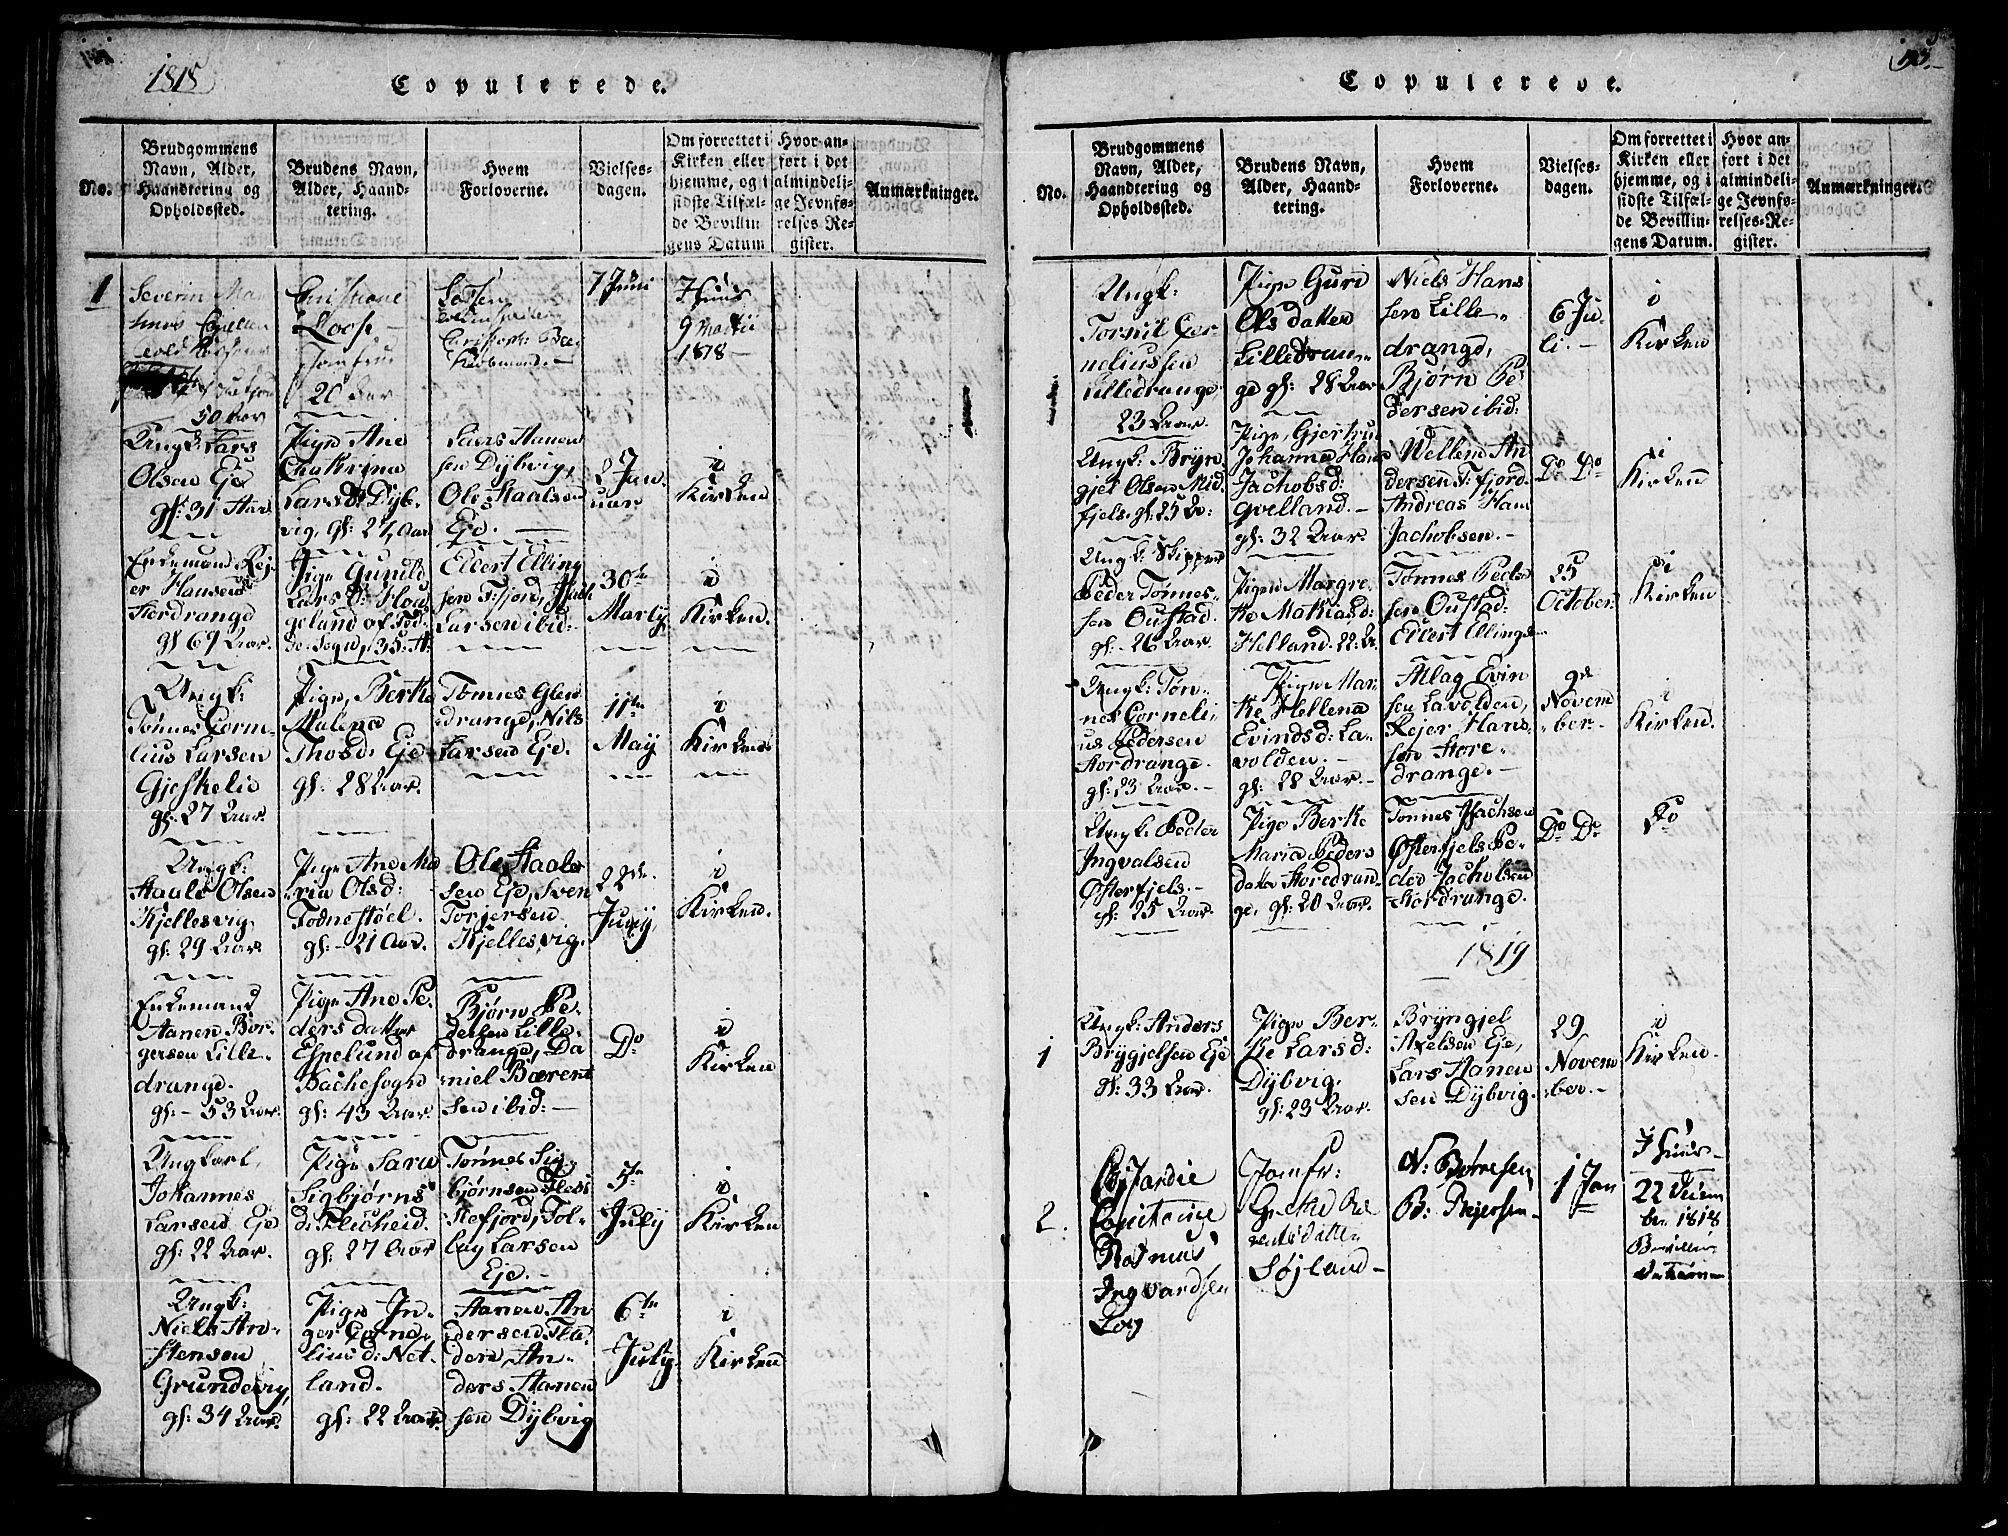 1818
Copulerede.
No.
Brudgommens
Navn, Alder,
Haandtering og
Opholdssted.
Brudens Navn,
Alder, Haand-
tering.
Hvem
Forloverne.
Vielses-
dagen.
Om forrettet i
Kirken eller
hjemme, og i
sidste Tilfæl-
de Bevillin
gens Datum
Hvor an-
ført i det
almindeli-
ge Jevnfø-
relses-Re-
gister.
Anmærkninger.
1
Severin
50 Aar
Christiane
Loose
Jomfrue
20 Aar
7 Juni
i Huus
9 Martii
1818
Ungk: Lars
Olsen Eje
gl: 31 Aar.
Pige Ane
Cathrina
Lars D: Dÿb-
vig, gl: 27 Aar
Lars Aanen
sen Dÿbvig,
Ole Staalsen
Eje.
2 Jan-
uar
i
Kirken
Enkemand Rej-
er Hansen
Stordrange
gl 69 Aar.
Pige Gunild
Lars D: Hou-
geland af
Sogn, 35: A:
Eilert Elling
sen F:fjord,
Larsen ibid:
30te
Martÿ
i
Kirken.
Ungk:
Tønnes Corne-
lius Larsen
Gjeskelie
gl: 27 Aar.
Pige, Berthe
Malena
Thosd: Eje
gl: 28 Aar.
Tønnes Glen
drange, Nils
Larsen Eje.
11te
Maÿ
i
Kirken
Ungk:
Staale Olsen
Kjellesvig
gl: 29 Aar.
Pige Ane Ma
ria Olsd:
Todnestøel.
gl: 21 Aar.
Ole Staale
sen Eje, Sven
Torjersen
Kjellesvig.
22de
Junÿ
i
Kirken.
Enkemand
Aanen Bør-
gersen Lille-
drange.
gl: 53 Aar.
Pige Ane Pe-
ders datter
Espelund af
Bache sogn
gl: 43 Aar
Bjørn Pe-
dersen Lille-
drange, Da
niel Børen
sen ibid:
Do
i
Kirken
Ungkarl,
Johannes
Larsen Eje
gl: 22 Aar.
Pige Sara
Sigbjørns
d: Flicheid.
gl: 27 Aar
Tønnes Sig-
bjørnsen Fleds
kefjord, Tol-
lag Larsen
Eje.
5te
Julÿ
i
Kirken
Ungk:
Niels An-
stensen
Grundevig,
gl: 34 Aar.
Pige In-
ger Corne-
lius d: Net-
land.
gl: 22 Aar.
Aanen An
dersen Fla-
den, An-
ders Aanen
sen Dÿbvig
6te
Julÿ
i
Kirken
Copulerede.
No.
Brudgommens
Navn, Alder,
Haandtering og
Opholdssted.
Brudens Navn,
Alder, Haand-
tering.
Hvem
Forloverne.
Vielses-
dagen.
Om forrettet i
Kirken eller
hjemme, og i
sidste Tilfæl-
de Bevillin-
gens Datum.
Hvor an-
ført i det
almindeli-
ge Jevnfø-
relses-Re-
gister.
Anmærkninger.
Ungk:
Tornil Cor
neliussen
Lilledrange
23 Aar.
Pige Guri
Ols datter
Lilledran-
ge gl: 28 Aar
Niels Hans
sen Lille-
drange,
Bjørn Pe-
dersen ibid:
6 Ju-
li.
i
Kirken
Ungk: Brÿn
gjel Olsen Mid-
fjels. gl: 25 Aa:
Pige, Gjertrud
Johanna Hans
Jachobsd:
Qvelland.
gl: 32 Aar.
Wellem An
dersen F:fjord.
Andreas Hans
Jachobsen.
Do Do
i
Kirken
Ungk: Skipper
Peder Tønnes-
sen Oustad.
gl: 26 Aar.
Pige Margre
the Mathiasd:
Helland. 22 Aa
Tønnes Peder
sen Oustad:
Eilert Ellings
25
October
i
Kirken
Ungk: Tøn-
nes Corneli-
us Pedersen
Stordrange.
gl: 23 Aar.
Pige Mar-
the Hellena
Evindsd: La-
volden.
gl: 28 Aar.
Atlag Evin
sen Lavolden,
Rejer Hans
sen Store-
drange.
9de
Novem
ber.
i
Kirken.
Ungk: Peder
Ingvalsen
Østerfjels.
gl: 25 Aar.
Pige Berthe
Maria Peders
datter Storedran-
ge, gl: 20 Aar.
Tønnes Isachsen
Østerfjels Pe-
der Jachobsen
Stordrange.
Do Do
Do
1819
1
Ungk: Anders
Brÿgjelsen Eje
gl: 33 Aar.
Pige Ber-
the Larsd:
Dÿbvig.
gl: 23 Aar.
Brÿngjel
Axelsen Eje,
Lars Aanen
sen Dÿbvig.
29
Novem
ber.
i
Kirken.
2.
Rasmus
Ingvardsen
Log
Jomfr:
Søjland
N: Børresen
B: Rejersen
1 Jan
i Huus
22 Decem
ber 1818